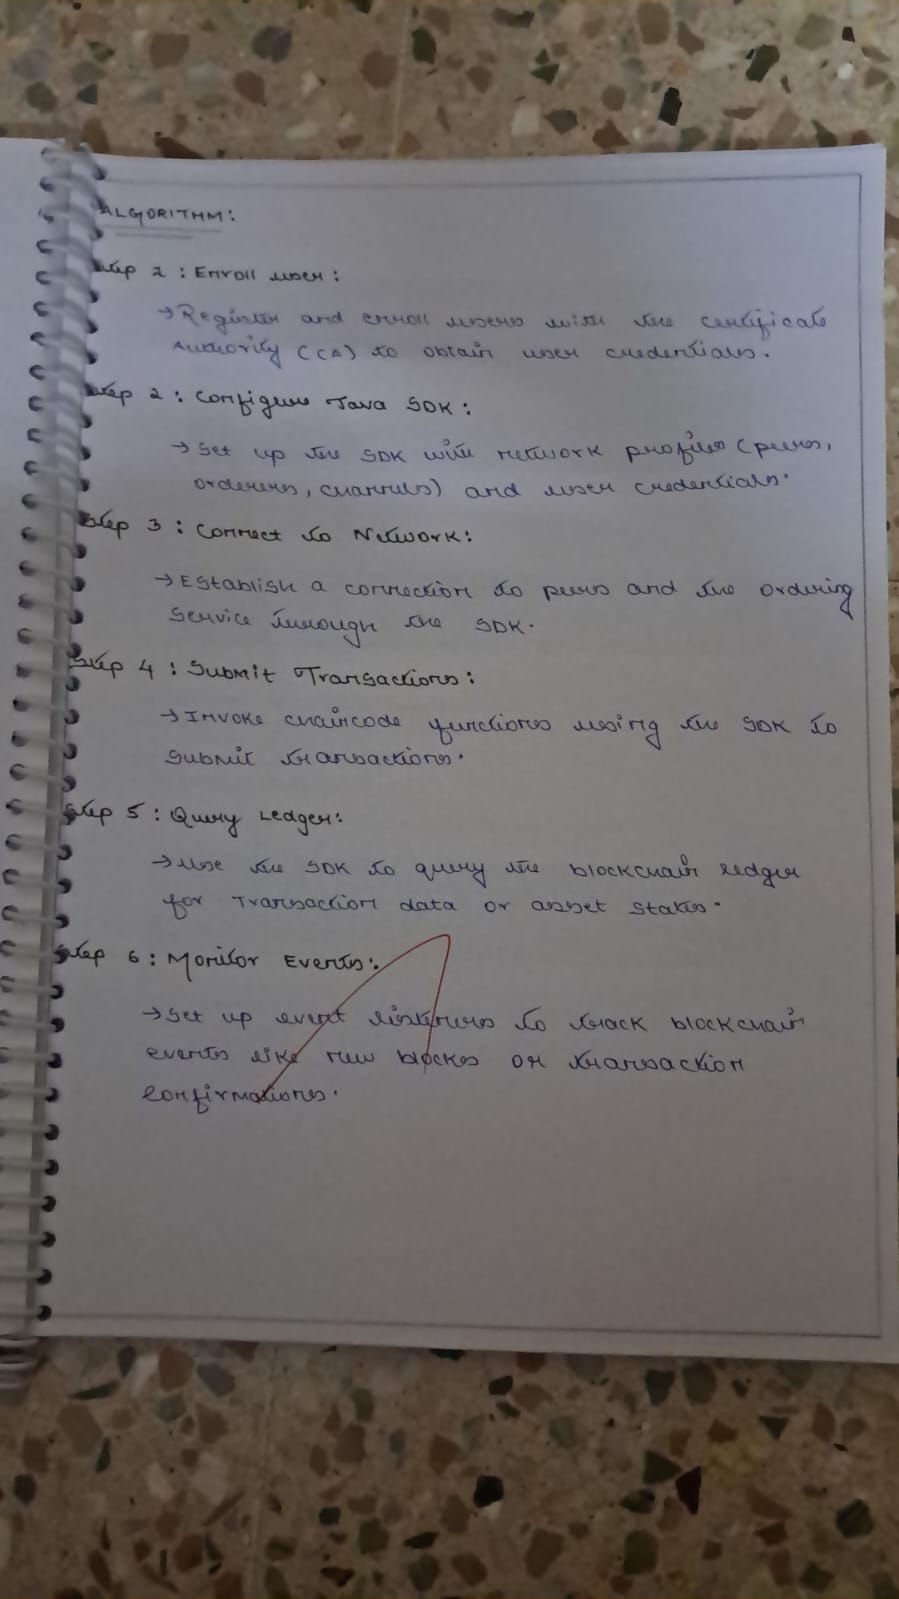 ALGORITHM:
Step 1 : Enroll user :
→ Register and enroll users with the certificate
Authority (CA) to obtain user credentials.
Step 2 : Configure Java SDK :
→ Set up the SDK with network profiles (peers,
orderers, channels) and user credentials.
Step 3 : Connect to Network :
→ Establish a connection to peers and the ordering
service through the SDK.
Step 4 : Submit Transactions :
→ Invoke chaincode functions using the SDK to
submit transactions.
Step 5 : Query Ledger :
→ Use the SDK to query the blockchain ledger
for transaction data or asset states.
Step 6 : Monitor Events :
→ Set up event listeners to track blockchain
events like new blockes or transaction
confirmations.